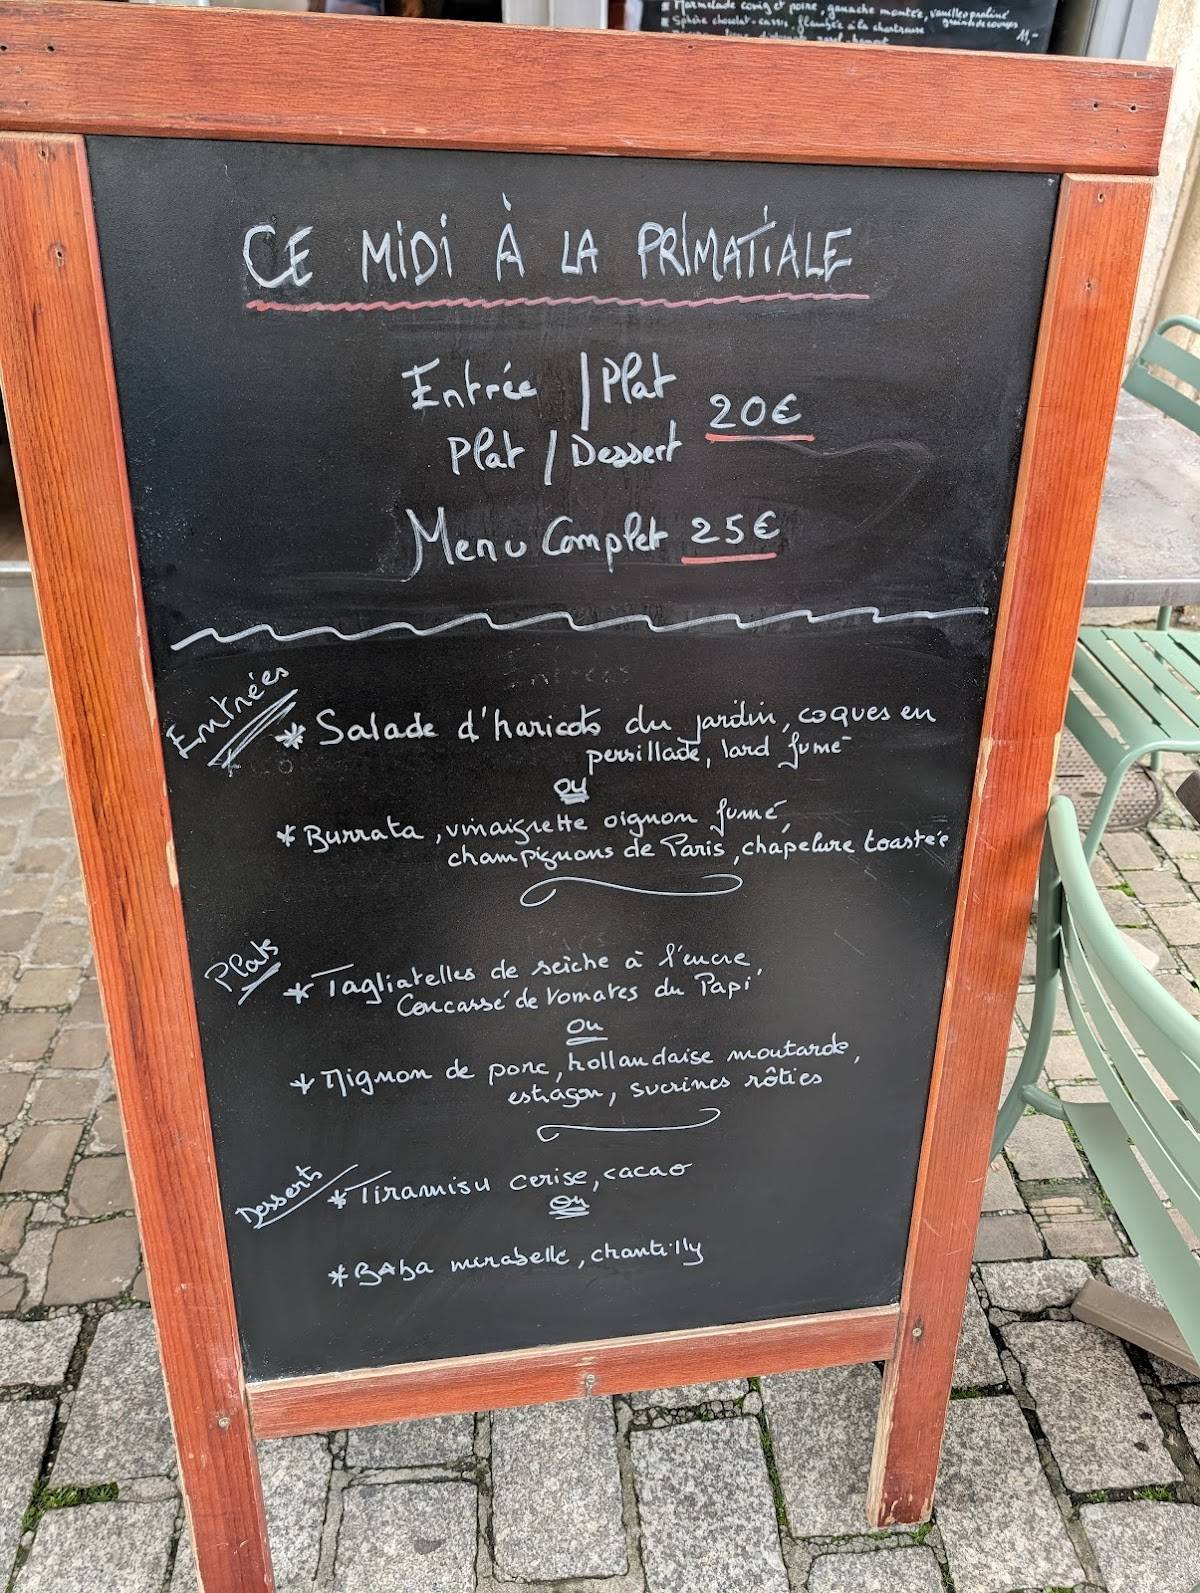 * Marmelade coing et poire, ganache montée, vanille praliné
grains de courges
* Sphère chocolat-cassis, flambée à la chartreuse 11,-
CE MiDi À LA PRiMATiALE
Entrée / Plat
20€
Plat / Dessert
Menu Complet 25€
Entrées
* Salade d'haricots du jardin, coques en
persillade, lard fumé
ou
* Burrata, vinaigrette oignon fumé,
champignons de Paris, chapelure toastée
Plats
* Tagliatelles de seiche à l'encre,
Concassé de tomates du Papi
ou
* Mignon de porc, hollandaise moutarde,
estragon, sucrines rôties
Desserts
* Tiramisu cerise, cacao
ou
* BABa mirabelle, chantilly